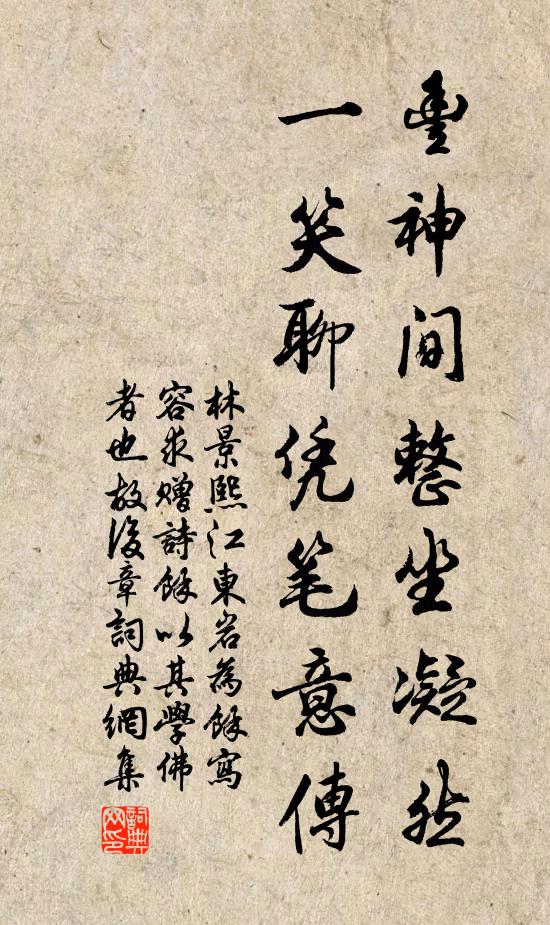 豊神間整坐凝然
一笑聊凭笔意傳
林景熙江東岩為餘寫
容求贈詩餘以其學佛
者也故後章詞典網集
詞典
网印